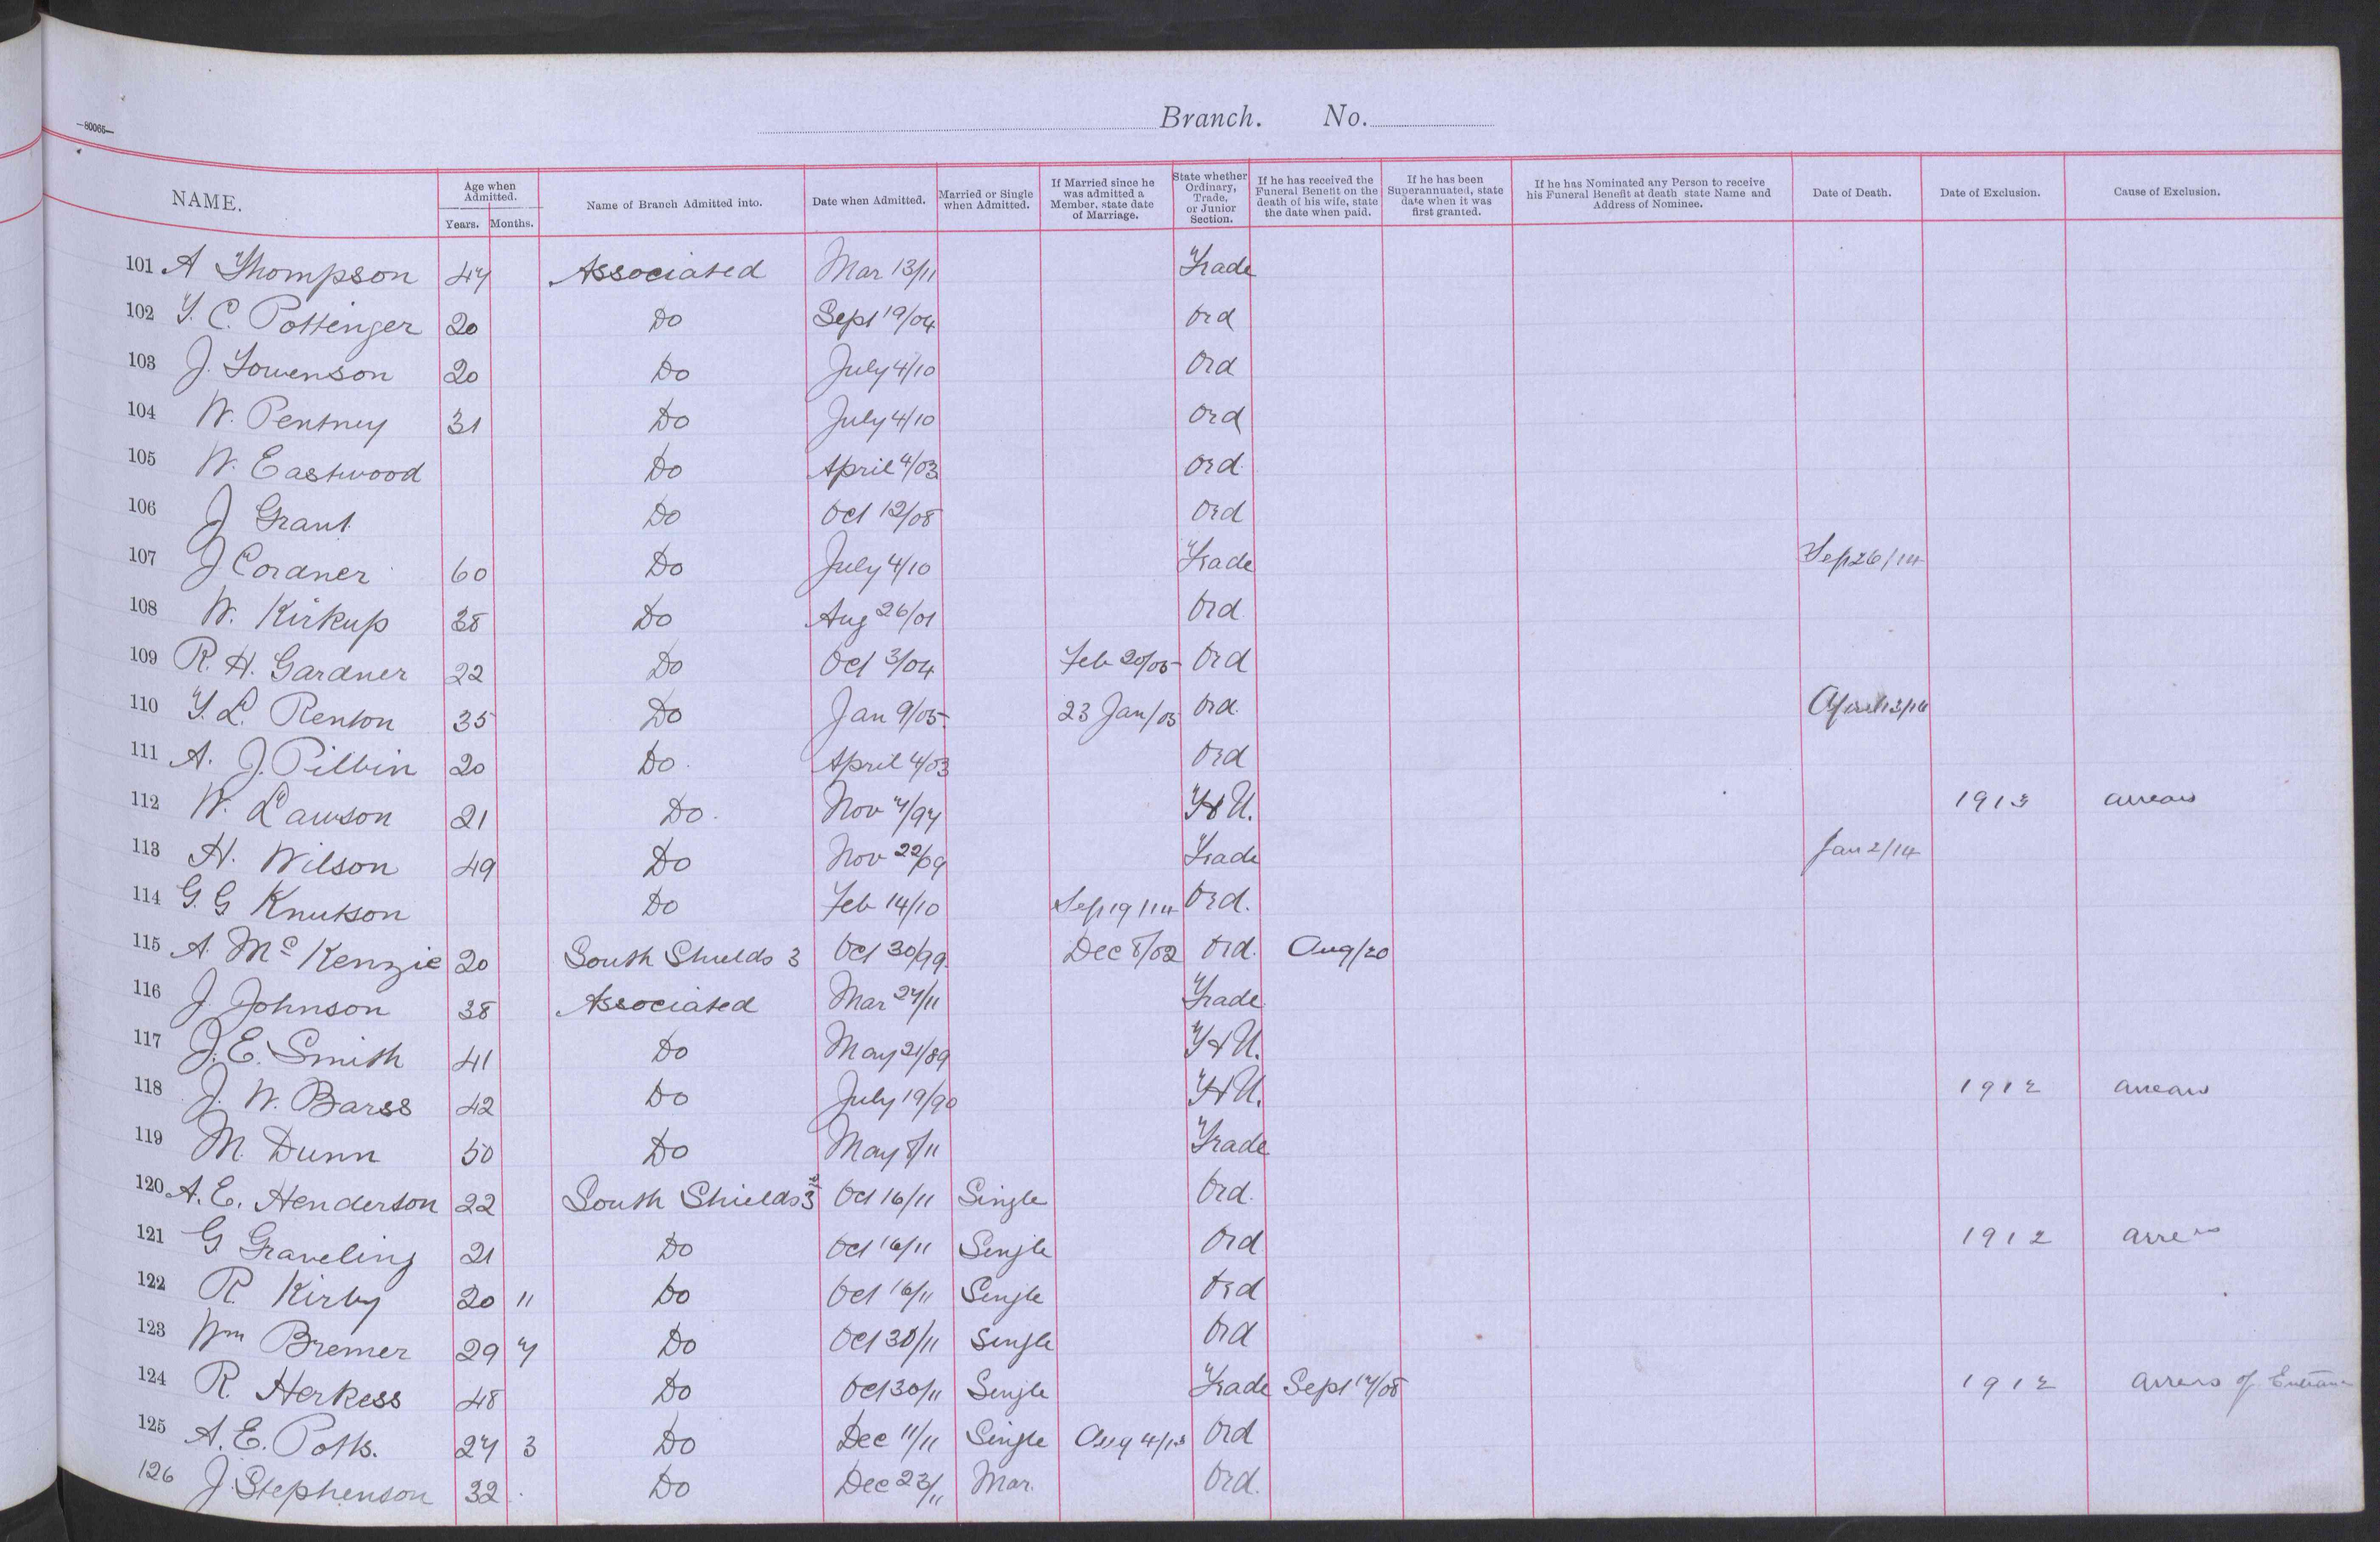 —80065—
Branch. No.
NAME. Age when Admitted. Years. Months. Name of Branch Admitted into. Date when Admitted. Married or Single when Admitted. If Married since he was admitted a Member, state date of Marriage. State whether Ordinary, Trade, or Junior Section. If he has received the Funeral Benefit on the death of his wife, state the date when paid. If he has been Superannuated, state date when it was first granted. If he has Nominated any Person to receive his Funeral Benefit at death state Name and Address of Nominee. Date of Death. Date of Exclusion. Cause of Exclusion.
101 A Thompson 47 Associated Mar 13/11 Trade
102 T. C. Pottinger 20 Do Sept 19/04 Ord
103 J. Lowenson 20 Do July 4/10 Ord
104 W. Pentney 31 Do July 4/10 Ord
105 W. Eastwood Do April 4/03 Ord
106 J Grant Do Oct 12/08 Ord
107 J Cordner 60 Do July 4/10 Trade Sep 26/14
108 W. Kirkup 38 Do Aug 26/01 Ord
109 R. H. Gardner 22 Do Oct 3/04 Feb 20/05 Ord
110 T. L. Renton 35 Do Jan 9/05 23 Jan/05 Ord. April 13/16
111 A. J. Pilbin 20 Do. April 4/03 Ord
112 W. Lawson 21 Do. Nov 7/97 U. 1913 arrears
113 H. Wilson 49 Do Nov 22/09 Trade Jan 2/14
114 G. G Knutson Do Feb 14/10 Sep 19/14 Ord.
115 A. Mc Kenzie 20 South Shields 3 Oct 30/99 Dec 8/02 Ord. Aug/20
116 J Johnson 38 Associated Mar 27/11 Trade
117 J. E. Smith 41 Do May 21/89 T H U.
118 J. W. Barss 42 Do July 19/90 T H U. 1912 arrears
119 M. Dunn 50 Do May 8/11 Trade
120 A. E. Henderson 22 South Shields 3 Oct 16/11 Single Ord.
121 G Graveling 21 Do Oct 16/11 Single Ord 1912 arrers
122 R. Kirby 20 11 Do Oct 16/11 Single Ord
123 Wm Bremer 29 7 Do Oct 30/11 Single Ord
124 R. Herkess 48 Do Oct 30/11 Single Trade Sept 17/08 1912 arrers of
125 A. E. Potts. 27 3 Do Dec 11/11 Single Aug 4/13 Ord
126 J. Stephenson 32 Do Dec 23/11 Mar. Ord.